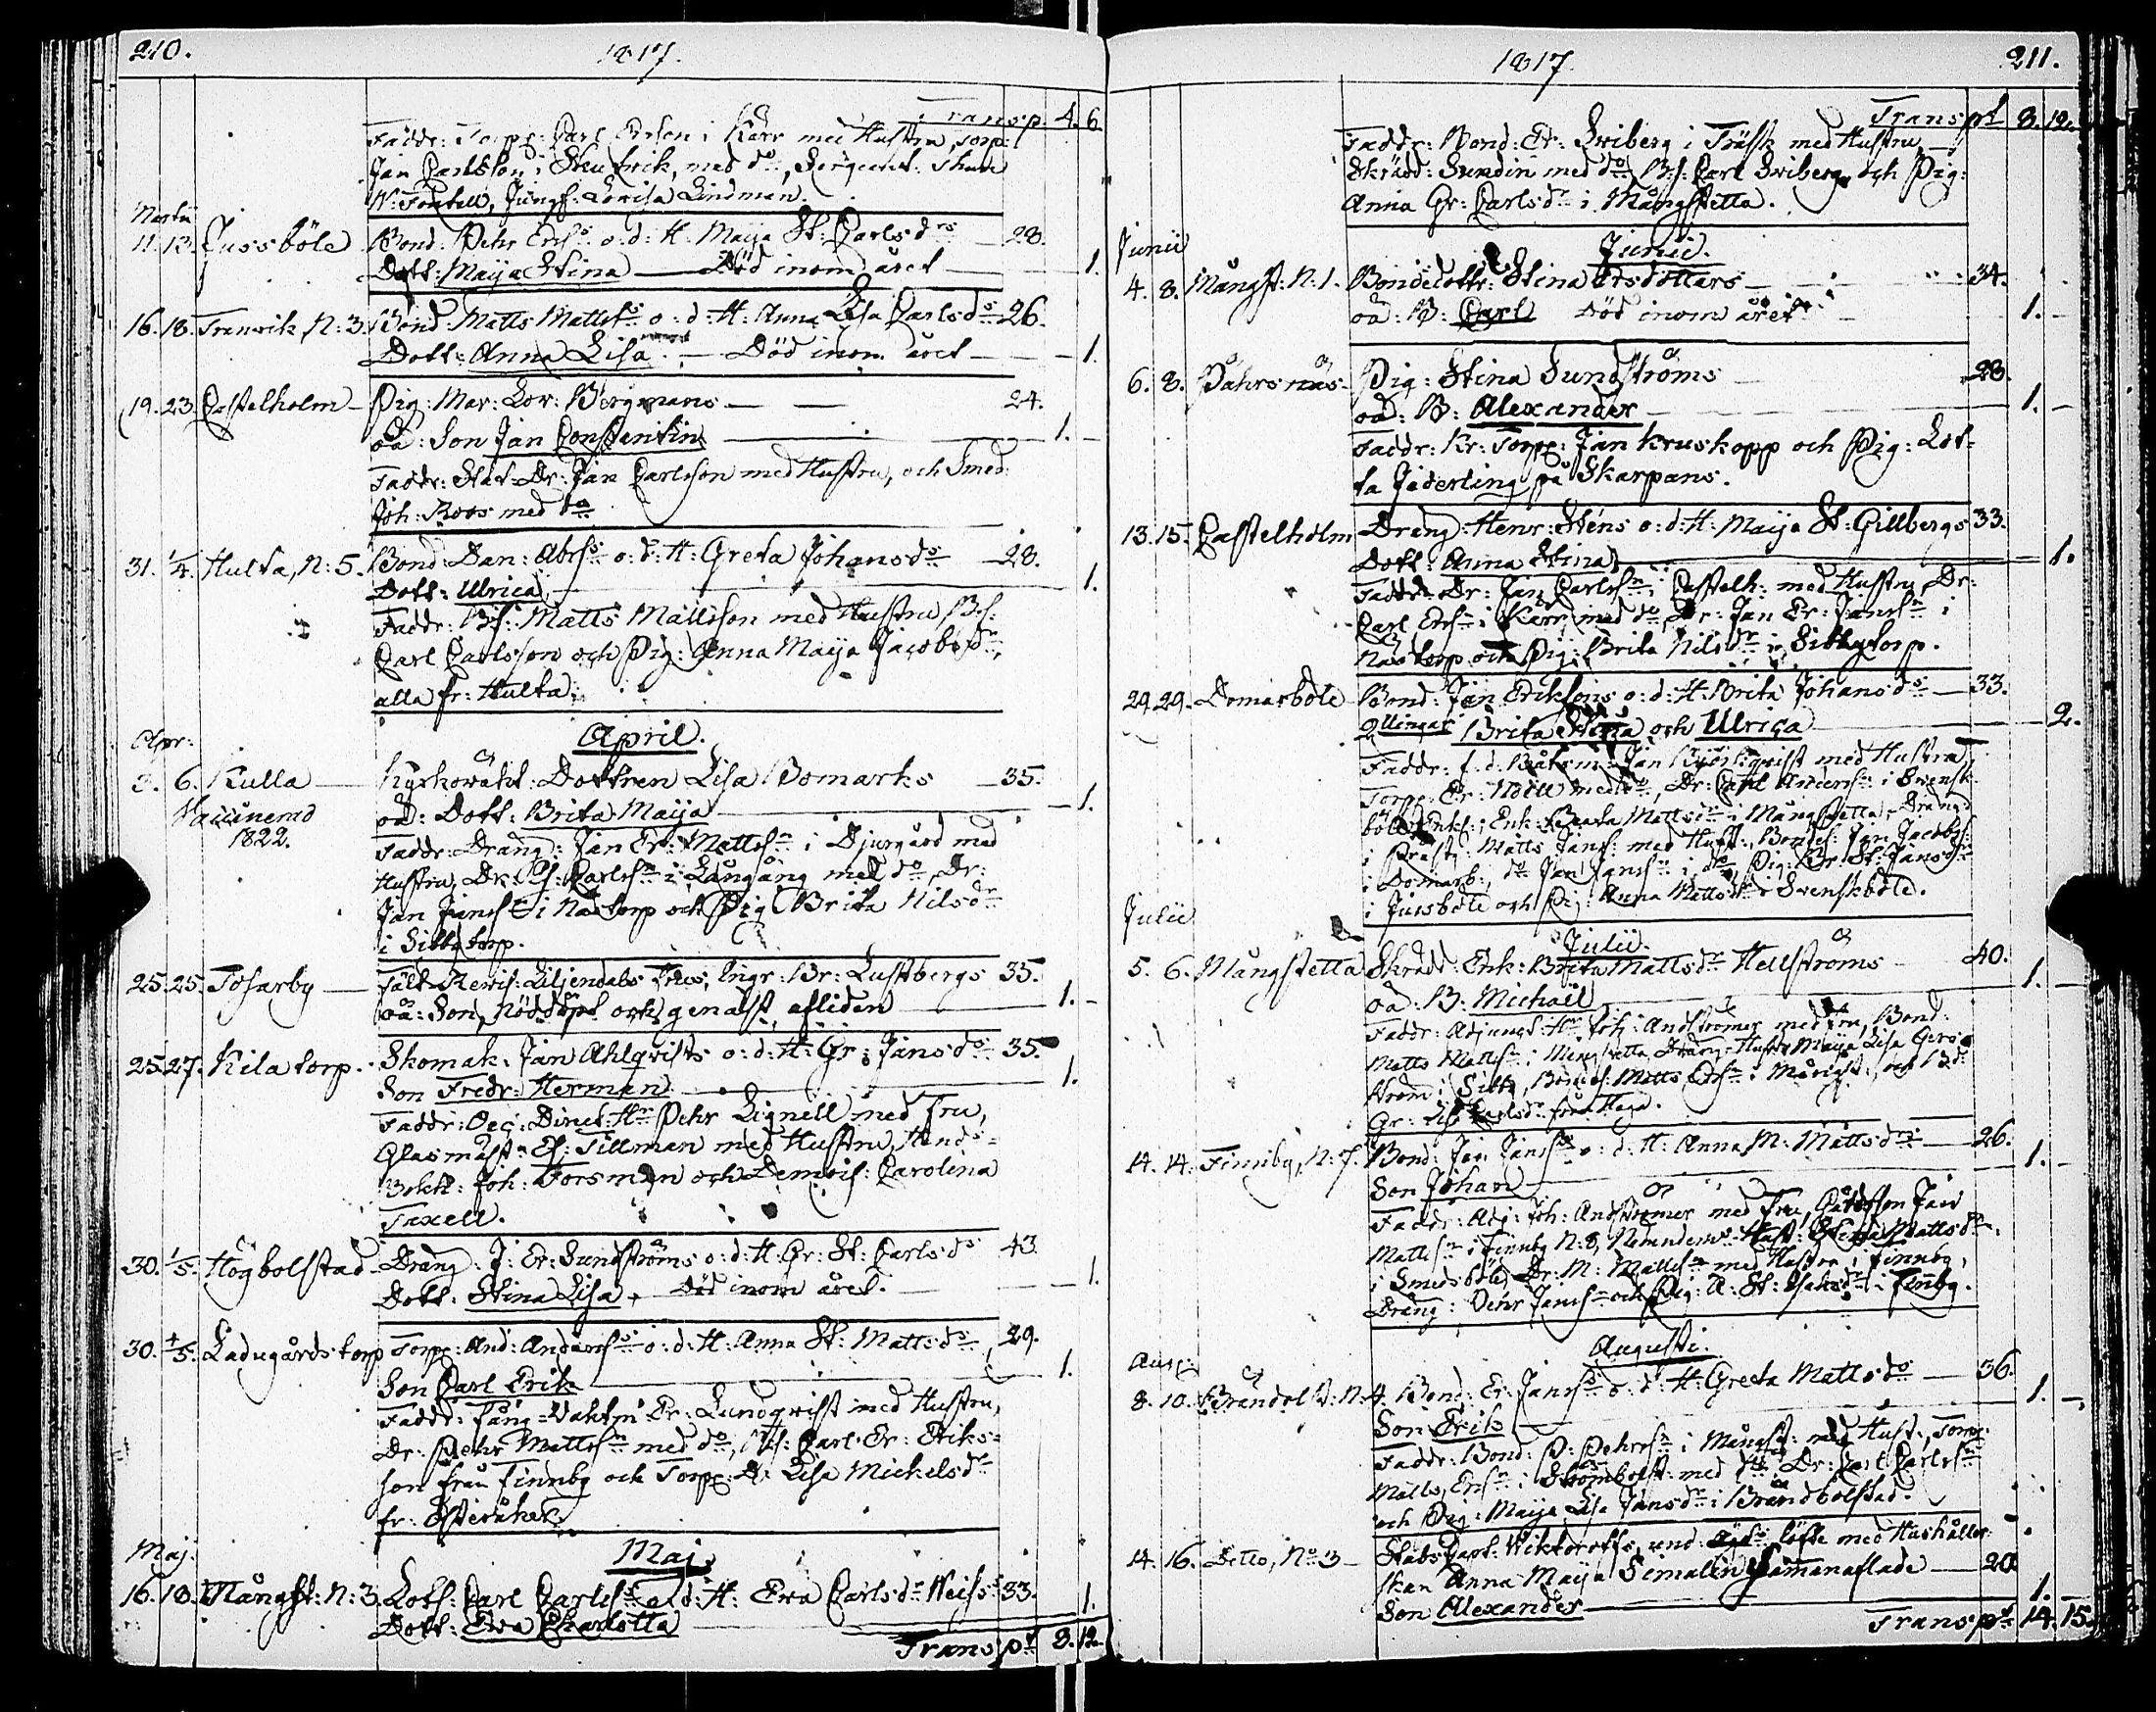 210.
1817.
Transp. 4. 6.
Faddr: Torpp: Carl Ersson i Kärr med Hustru, Torp:
Jan Carlsson i Stenbrik, med do, Sergeant:
N: Fontell, Jungf: Lovisa Lindman.
Martii
11. 12. Jussböle Bond: Pehr Erss: o: d: H: Maija St: Carlsdrs 28.
Dott: Maija Stina — Död inom året — 1.
16. 18. Tranvik N: 3. Bond: Matts Mattss: o: d: H: Anna Lisa Carlsds 26.
Dott: Anna Lisa — Död inom året — 1.
19. 23. Castelholm — Pig: Mar: Lov: Bergmans — 24.
oä: Son Jan Constantin — 1. —
Faddr: Stat-Dr: Jan Carlsson med Hustru, och Smed:
Joh: Roos med do
31. 1/4. Hulta, N: 5. Bond: Dan: Abrss: o: d: H: Greta Johansds — 28.
Dott: Ulrica — 1.
Faddr: Bs: Matts Mattsson med Hustru, Bs:
Carl Carlsson och Pig: Anna Maija Jacobsdr,
alla fr: Hulta.
April.
Apr:
3. 6. Kulla — Kyrkowäkt: Dottren Lisa Bomarks — 35.
oä: Dott: Brita Maija — 1.
Vaccinerad
1822.
Faddr: Dräng: Jan Er: Mattsn i Djurgård med
Hustru, Dr: Carlsn i Långäng med do, Dr:
Jan Janss: i Nästorp och Pig: Brita Nilsdr
i Sibbytorp.
25. 25. Tosarby — Fält-Kewis: Liljendals Frus, Ingr: Br: Lustbergs 35.
oä: Son, Nöddöpt och genast afliden — 1. —
25. 27. Kilatorp. Skomak: Jan Ahlqvists o: d: H: Gr: Jansds 35.
Son Fredr: Herman — 1.
Faddr: Oec: Direct: Hr Pehr Lignell med Fru,
Glasmäst: Es: Tillman med Hustru, Hand:
Bokh: Joh: Forsman och Demois: Carolina
Taxell.
30. 1/5. Högbolstad Dräng: J: Er: Sundströms o: d: H: Gr: St: Carlsds 43.
Dott: Stina Lisa, Död inom året. — 1.
30. 4/5. Ladugårdstorp Torpp: And: Anderss: o: d: H: Anna St: Mattsds 29.
Son Carl Erik — 1.
Faddr: Fång-Vaktm: Er: Lundqvist med Hustru,
Dr: Pehr Mattsn med do, Bs: Carl Er: Eriks-
son från Finnby och Torpp: D: Lisa Mickelsdr
fr: Österåker.
Maj.
Maj:
16. 18. Mångst: N: 3. Lots: Carl Carlss: o: d: H: Eva Carlsd: Weiss: 33.
Dott: Eva Charlotta — 1.
Transpt 8. 12.
1817.
211.
Transpt 8. 12.
Faddr: Bond: Er: Sviberg i Träsk med Hustru,
Skrädd: Sundin med do, Bs: Carl Sviberg och Pig:
Anna Gr: Carlsdr i Mångstetta.
Junii
Junii.
4. 8. Mångst: N: 1. Bondedottr: Stina Ersdotters — 34.
oä: B: Carl Död inom året — 1. —
6. 8. Påhrsnäs — Pig: Stina Sundströms — 28.
oä: B: Alexander — 1. —
Faddr: Kr: Torpp: Jan Kruskopp och Pig: Lot-
ta Jäderling på Skarpans.
13. 15. Castelholm Dräng: Henr: Sténs o: d: H: Maija St: Gillbergs 33.
Dott: Anna Stina — 1.
Faddr: Dr: Jan Carlsn i Castelh: med Hustru, Dr:
Carl Ersn i Kärr med do, Dr: Jan Er: Jansn i
Nästorp och Pig: Brita Nilsdr i Sibbytorp.
29. 29. Domarböle Bond: Jan Erikssons o: d: H: Brita Johansds — 33.
Tvillingar Brita Stina och Ulrica — 2.
Faddr: f: d: Båtsm: Jan Björkqvist med Hustru,
Torpp: Er: Nöill med do, Dr: Carl Andersn i Svensk-
böle, Enk: Beata Mattsdr i Mångstetta, Dräng:
i Prästg: Matts Janss: med Hust:, Bondes: Jan Jacobss:
i Domarb:, do Jan Janss: i do, Pig: Br: St: Jansdr
i Jussböle och Pig: Anna Mattsdr i Svenskböle.
Julii
Julii.
5. 6. Mångstetta Skrädd: Enk: Brita Mattsdr Hellströms — 40.
oä: B: Michaël — 1. —
Faddr: Adjunct: Hr Joh: Andströmer med Fru, Bond:
Matts Mattsn i Mångstetta, Dräng-Hustr Maija Lisa
i Sittb, Bondes: Matts Ersn i Mångst:, och Bd:
Gr: Lisa Carlsdr från Haga.
14. 14. Finnby, N: 7. Bond: Jan Janss: o: d: H: Anna M: Mattsds — 26.
Son Johan — 1. —
Faddr: Adj: Joh: Andströmer med Fru, Jan
Mattsn i Finnby N: 8, Nämndem: Hust: Stina Mattsdr
i Smedsböle, Dr: M: Mattsn med Hustru i Finnby,
Dräng: Pehr Jansn och Pig: A: St: Isaksdr i Finnby.
Augusti.
Aug:
8. 10. Brändbolst: N: 4. Bond: Er: Janss: o: d: H: Greta Mattsds — 36.
Son Erik — 1. —
Faddr: Bond: P: Pehrsn i Mångst: med Hust:, Torpp:
Matts Ersn i Strömbolst: med do, Dr: Carl Carlsn
och Pig: Maija Lisa Jansdr i Brändbolstad.
14. 16. Detto, No 3 — Stabs Capt: Wiktoroffs, und: ägt: löfte med Hushåller-
skan Anna Maija Simalin sammanaflade — 20.
Son Alexander — 1.
Transpt 14. 15.